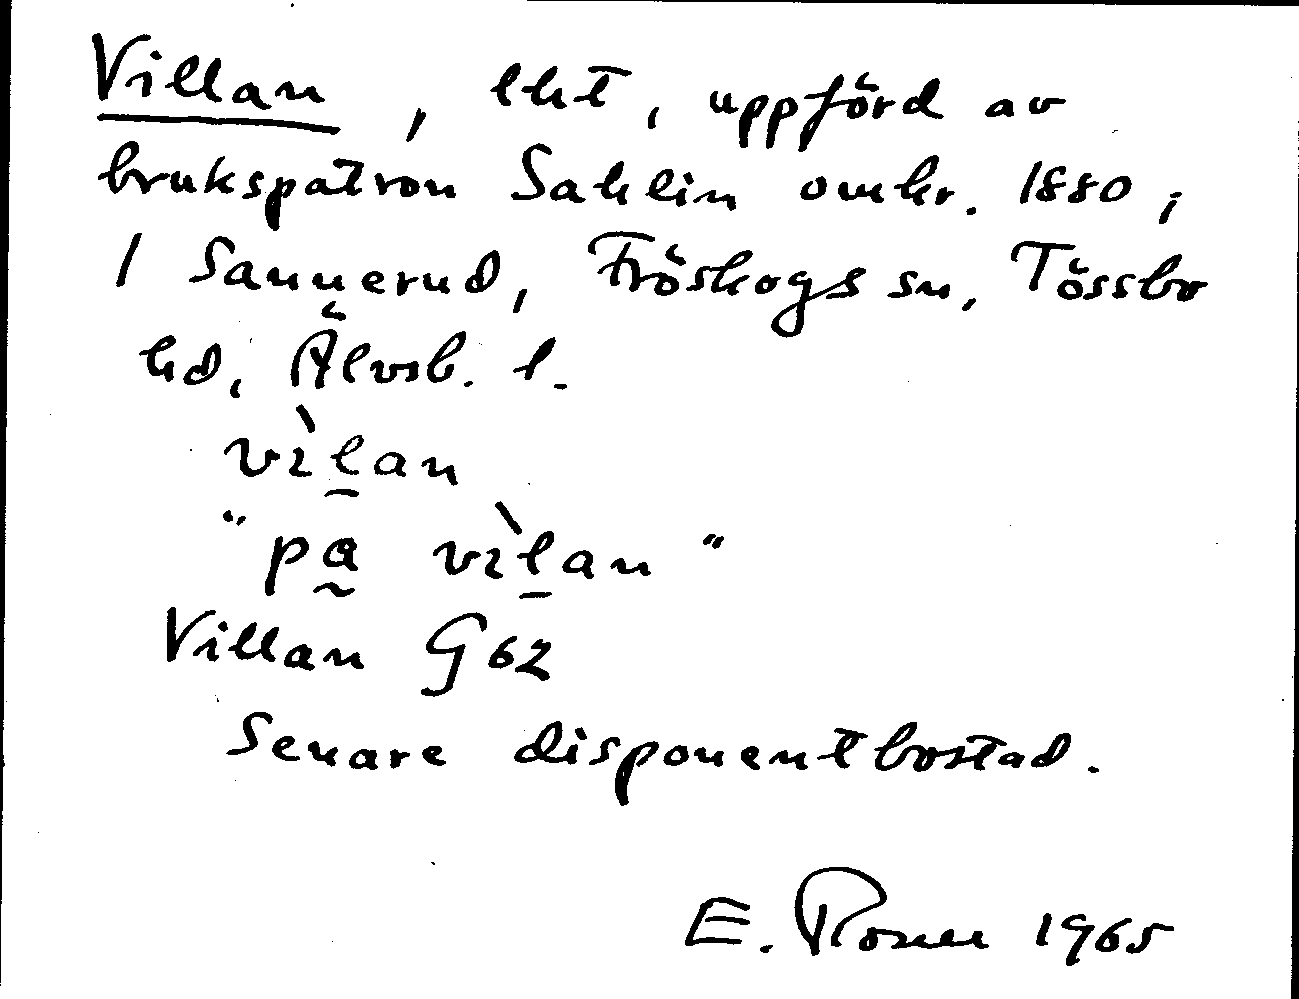 Villan, lht, uppförd av
brukspatron Sahlin omkr. 1880,
/ Sannerud, Fröskogs sn, Tössbo
hd, Älvsb. l.
vìlan
"på vìlan"
Villan G 62
Senare disponentbostad.
E. Rosen 1965